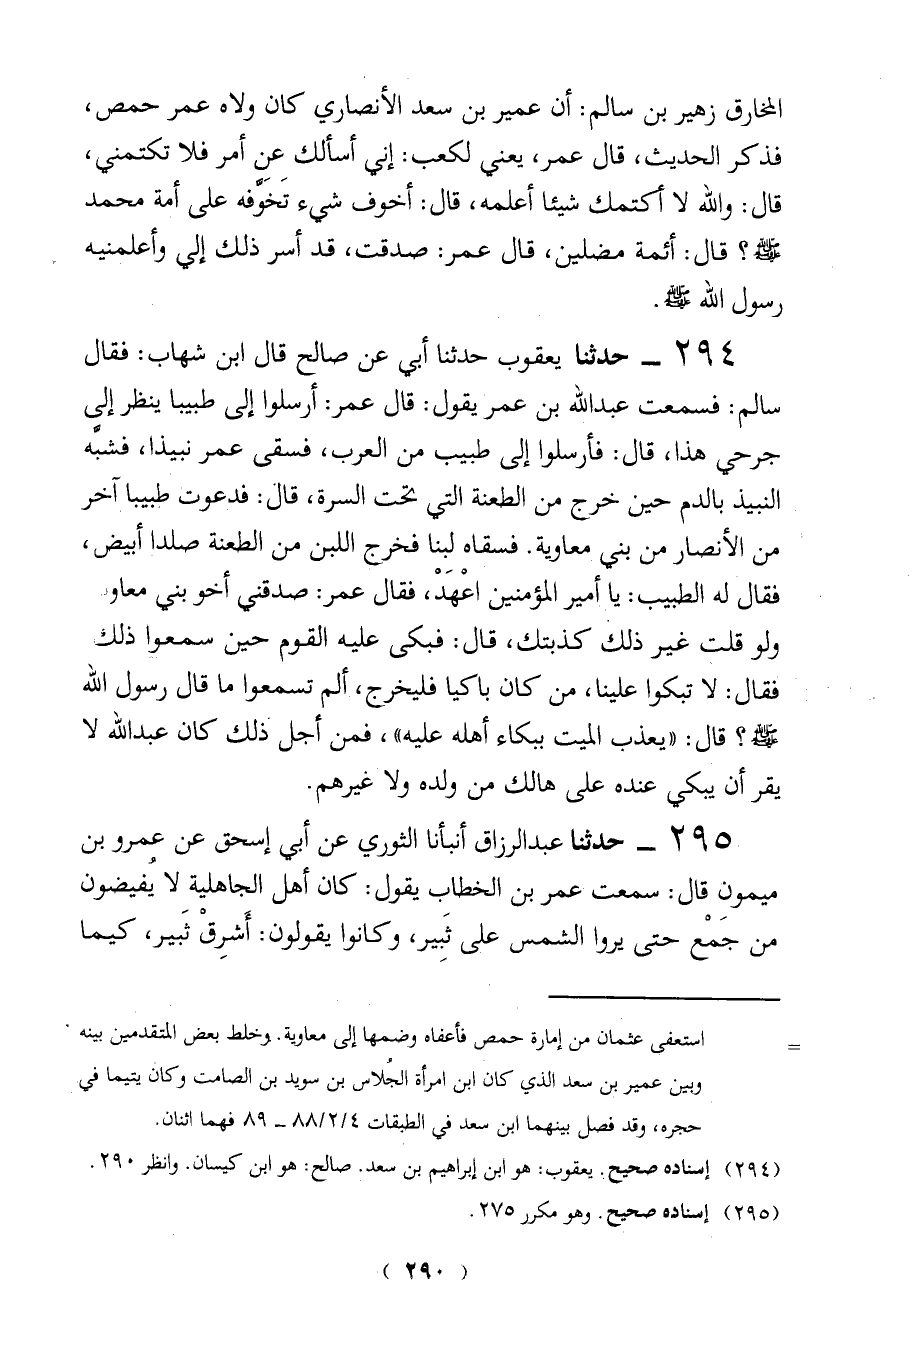 المخارق زهير بن سالم: أن عمير بن سعد الأنصاري كان ولاه عمر حمص،
فذكر الحديث، قال عمر، يعني لكعب: إني أسألك عن أمر فلا تكتمني،
قال: والله لا أكتمك شيئا أعلمه، قال: أخوف شيء تَخَوَّفه على أمة محمد
ﷺ؟ قال: أئمة مضلين، قال عمر: صدقت، قد أسر ذلك إلي وأعلمنيه
رسول الله ﷺ.
٢٩٤ ـ حدثنا يعقوب حدثنا أبي عن صالح قال ابن شهاب: فقال
سالم: فسمعت عبدالله بن عمر يقول: قال عمر: أرسلوا إلى طبيبا ينظر إلى
جرحي هذا، قال: فأرسلوا إلى طبيب من العرب، فسقى عمر نبيذا، فشبّه
النبيذ بالدم حين خرج من الطعنة التي تحت السرة، قال: فدعوت طبيبا آخر
من الأنصار من بني معاوية. فسقاه لبنا فخرج اللبن من الطعنة صلدا أبيض،
فقال له الطبيب: يا أمير المؤمنين اعْهَدْ، فقال عمر: صدقني أخو بني معاو
ولو قلت غير ذلك كذبتك، قال: فبكى عليه القوم حين سمعوا ذلك
فقال: لا تبكوا علينا، من كان باكيا فليخرج، ألم تسمعوا ما قال رسول الله
ﷺ؟ قال: «يعذب الميت ببكاء أهله عليه»، فمن أجل ذلك كان عبدالله لا
يقر أن يبكي عنده على هالك من ولده ولا غيرهم.
٢٩٥ ـ حدثنا عبدالرزاق أنبأنا الثوري عن أبي إسحق عن عمرو بن
ميمون قال: سمعت عمر بن الخطاب يقول: كان أهل الجاهلية لا يُفيضون
من جَمْع حتى يروا الشمس على ثَبِير، وكانوا يقولون: أَشرِقْ ثَبِير، كيما
= استعفى عثمان من إمارة حمص فأعفاه وضمها إلى معاوية. وخلط بعض المتقدمين بينه
وبين عمير بن سعد الذي كان ابن امرأة الجُلاس بن سويد بن الصامت وكان يتيما في
حجره، وقد فصل بينهما ابن سعد في الطبقات ٨٨/٢/٤ ـ ٨٩ فهما اثنان.
(٢٩٤) إسناده صحيح. يعقوب: هو ابن إبراهيم بن سعد. صالح: هو ابن كيسان. وانظر ٢٩٠.
(٢٩٥) إسناده صحيح. وهو مكرر ٢٧٥.
( ٢٩٠ )